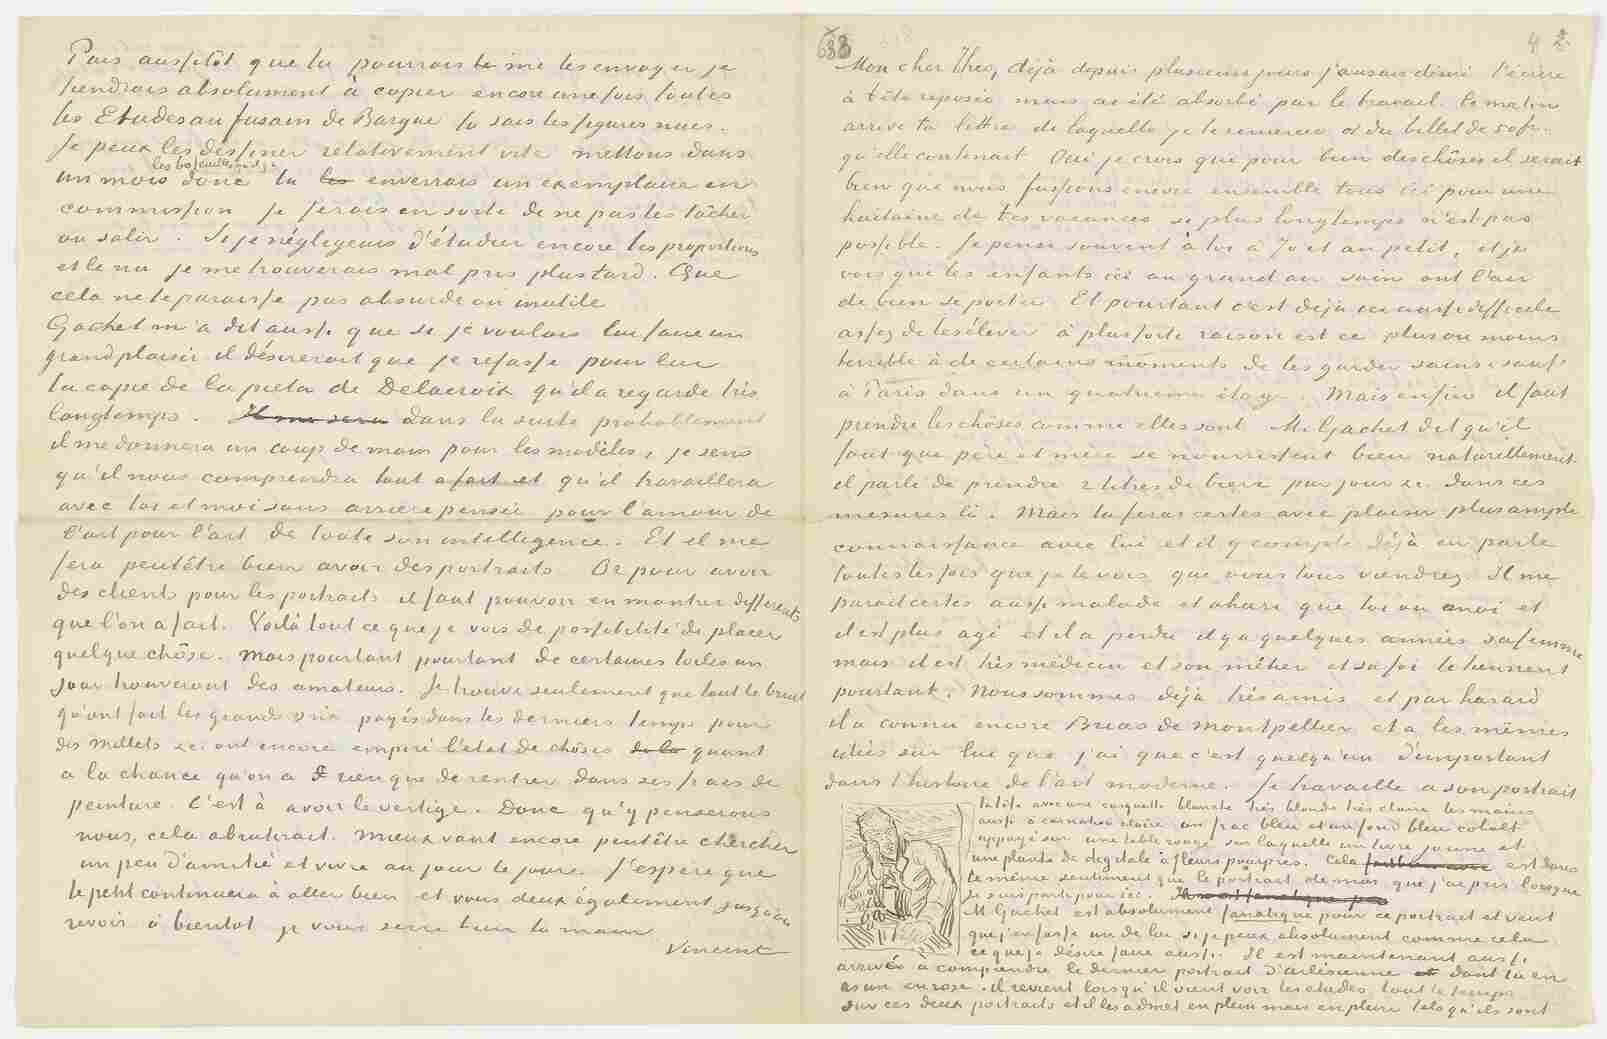 Puis aussitôt que tu pourrais te me les envoyer je
tiendrais absolument à copier encore une fois toutes
les Etudes au fusain de Bargue tu sais les figures nues.
Je peux les dessiner relativement vite mettons dans
les 60 feuilles qu'il y a
un mois donc tu les enverrais un exemplaire en
commission je ferais en sorte de ne pas les tâcher
ou salir. Si je négligeais d'étudier encore les proportions
et le nu je me trouverais mal pris plus tard. Que
cela ne te paraisse pas absurde ou inutile
Gachet m'a dit aussi que si je voulais lui faire un
grand plaisir il désirerait que je refasse pour lui
la copie de la pieta de Delacroix qu'il a regardé très
longtemps. Il me sera dans la suite probablement
il me donnera un coup de main pour les modèles, je sens
qu'il nous comprendra tout à fait et qu'il travaillera
avec toi et moi sans arrière pensée pour l'amour de
l'art pour l'art de toute son intelligence. Et il me
fera peutêtre bien avoir des portraits. Or pour avoir
des clients pour les portraits il faut pouvoir en montrer differents
que l'on a fait. Voilà tout ce que je vois de possibilité de placer
quelque chôse. Mais pourtant pourtant de certaines toiles un
jour trouveront des amateurs. Je trouve seulement que tout le bruit
qu'ont fait les grands prix payés dans les derniers temps pour
des Millets &c. ont encore empiré l'état de chôses de la quant
a la chance qu'on a de rien que de rentrer dans ses frais de
peinture. C'est à avoir le vertige. Donc qu'y penserions
nous, cela abrutirait. Mieux vaut encore peutêtre chercher
un peu d'amitié et vivre au jour le jour. J'espère que
le petit continuera à aller bien et vous deux également jusqu'au
revoir à bientot je vous serre bien la main
Vincent
638
4 2
Mon cher Theo, déjà depuis plusieurs jours j'aurais désiré t'écrire
à tête reposée mais ai été absorbé par le travail. Ce matin
arrive ta lettre de laquelle je te remercie et du billet de 50 fr.
qu'elle contenait. Oui je crois que pour bien des chôses il serait
bien que nous fussions encore ensemble tous ici pour une
huitaine de tes vacances si plus longtemps n'est pas
possible. Je pense souvent à toi à Jo et au petit, et je
vois que les enfants ici au grand air sain ont l'air
de bien se porter. Et pourtant c'est déjà ici aussi difficile
assez de les élever à plus forte raison est ce plus ou moins
terrible à de certains moments de les garder sains & saufs
à Paris dans un quatrième étage. Mais enfin il faut
prendre les chôses comme elles sont. M. Gachet dit qu'il
faut que père et mère se nourrissent bien naturellement
il parle de prendre 2 litres de biere par jour &c. dans ces
mesures là. Mais tu feras certes avec plaisir plus ample
connaissance avec lui et il y compte déjà en parle
toutes les fois que je le vois que vous tous viendrez. Il me
parait certes aussi malade et ahuri que toi ou moi et
il est plus agé et il a perdu il y a quelques années sa femme
mais il est très médecin et son métier et sa foi le tiennent
pourtant. Nous sommes déjà très amis et par hasard
il a connu encore Bruas de Montpellier et a les mêmes
idées sur lui que j'ai que c'est quelqu'un d'important
dans l'histoire de l'art moderne. Je travaille a son portrait
la tête avec une casquette blanche très blonde très claire les mains
aussi à carnation claire un frac bleu et un fond bleu cobalt
appuyé sur une table rouge sur laquelle un livre jaune et
une plante de digitale à fleurs pourpres. Cela est dans
le même sentiment que le portrait de moi que j'ai pris lorsque
je suis parti pour ici.
M. Gachet est absolument fanatique pour ce portrait et veut
que j'en fasse un de lui si je peux absolument comme cela
ce que je désire faire aussi. Il est maintenant aussi
arrivé à comprendre le dernier portrait d'arlésienne et dont tu en
as un en rose. il revient lorsqu'il vient voir les études tout le temps
sur ces deux portraits et il les admet en plein mais en plein tels qu'ils sont